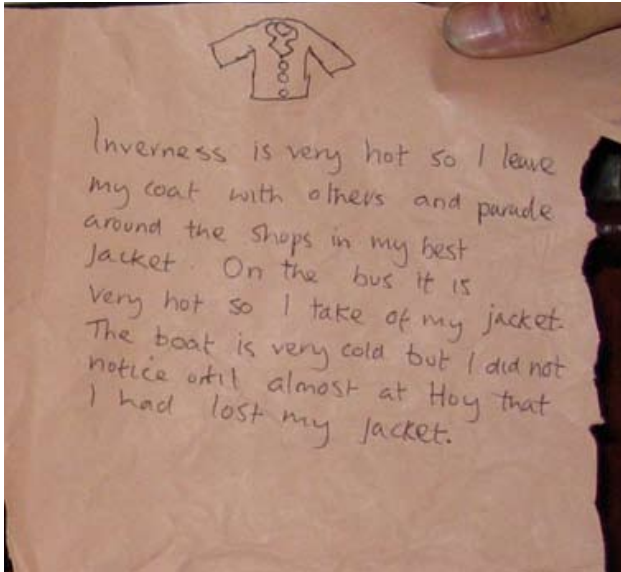 Inverness is very hot so I leave
my coat with others and parade
around the shops in my best
jacket. On the bus it is
very hot so I take of my jacket.
The boat is very cold but I did not
notice until almost at Hoy that
I had lost my jacket.